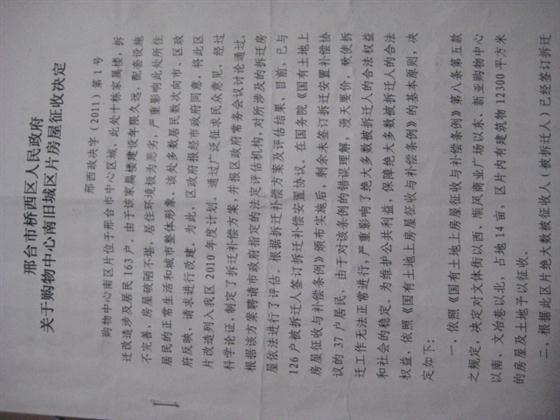 邢台市桥西区人民政府
关于购物中心南旧城区片房屋征收决定
邢西政决字（2011）第1号
购物中心南区片位于邢台市中心区域，此处十栋家属楼，拆
迁改造涉及居民163户，由于该家属楼建设年限久远，配套设施
不完善，房屋破陋不堪，居住环境极为恶劣，严重影响此处所住
居民的正常生活和城市整体形象。该处多数居民数次向市、区政
府反映，请求进行改建。为此，区政府报经市政府同意，将此区
片改造列入我区2010年度计划。通过广泛征求民众意见，经过
科学论证，制定了拆迁补偿方案，并报区政府常务会议讨论通过。
根据该方案聘请市政府指定的法定评估机构，对所涉及的拆迁房
屋依法进行了评估。根据拆迁补偿方案及评估结果，目前，已与
126户被拆迁人签订拆迁补偿安置协议。在国务院《国有土地上
房屋征收与补偿条例》颁布实施后，剩余未签订拆迁安置补偿协
议的37户居民，由于对该条例的错误理解，漫天要价，致使拆
迁工作无法正常进行，严重影响了绝大多数被拆迁人的合法权益
和社会的稳定。为维护公共利益，保障绝大多数被拆迁人的合法
权益，依照《国有土地上房屋征收与补偿条例》的基本原则，决
定如下：
一、依照《国有土地上房屋征收与补偿条例》第八条第五款
之规定，决定对文体街以西、顺风商业广场以东、新亚购物中心
以南、文冶巷以北，占地14亩，区片内有建筑物12300平方米
的房屋及土地予以征收。
二、根据此区片绝大数被征收人（被拆迁人）已经签订拆迁